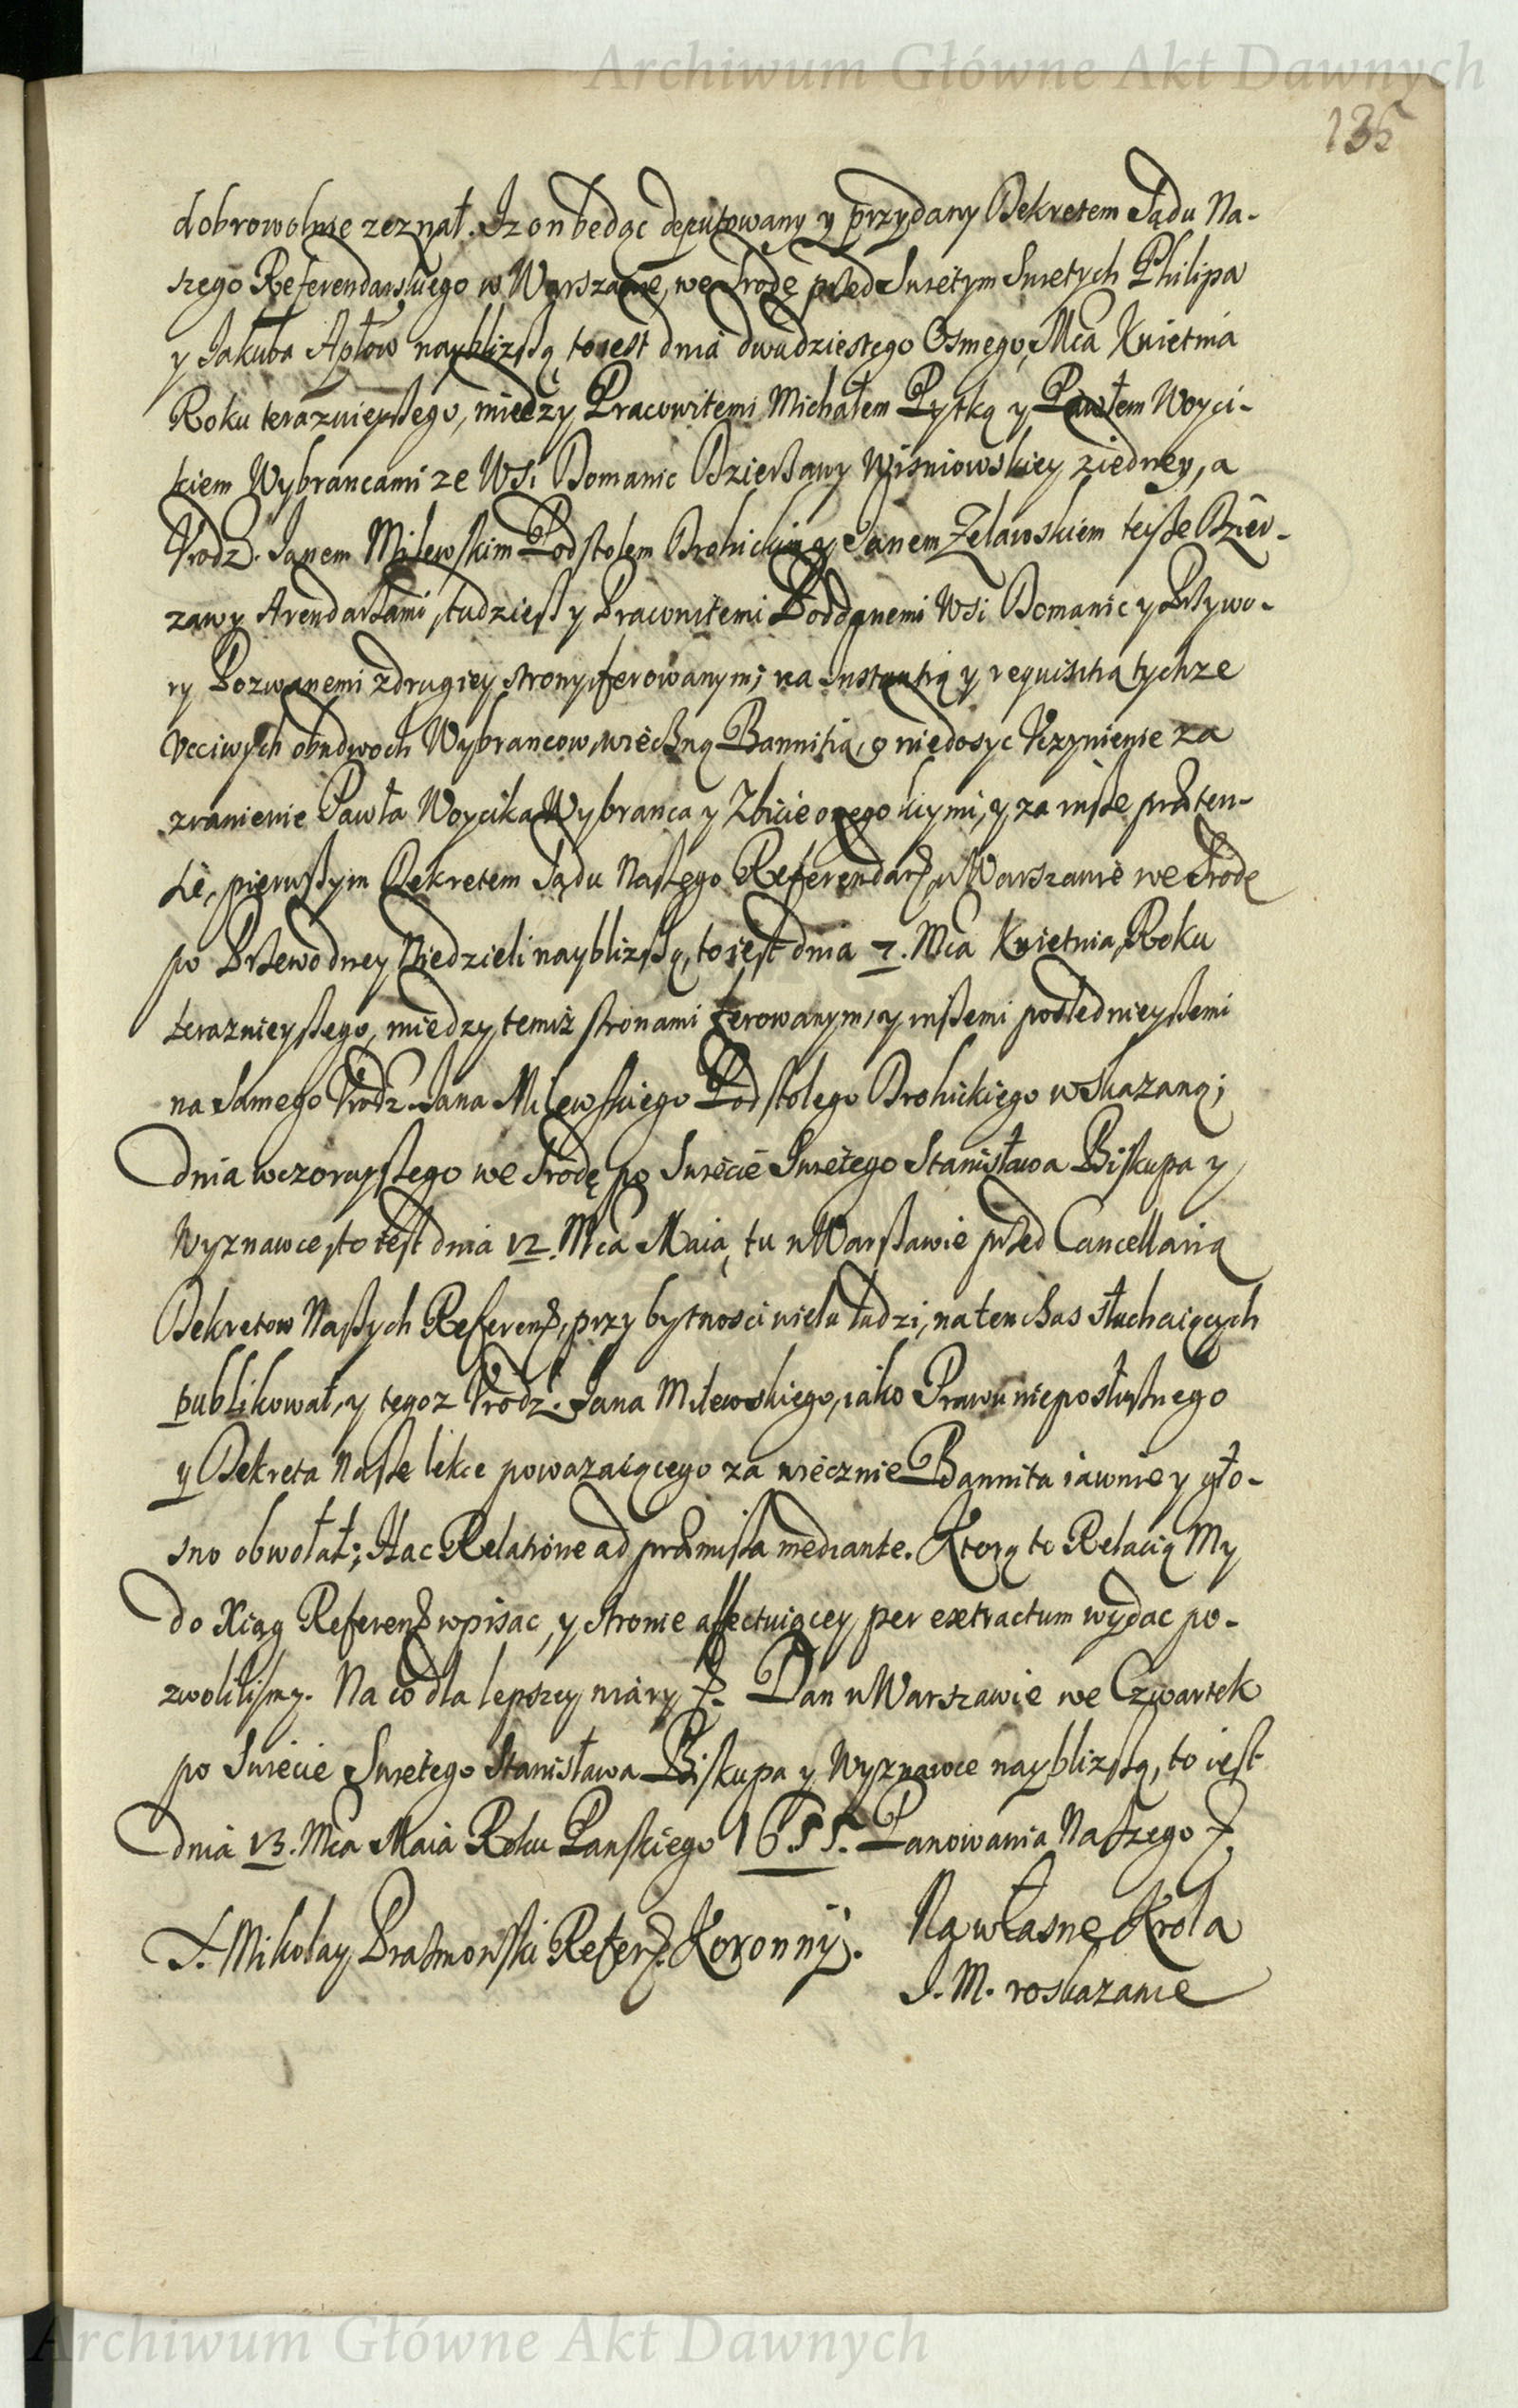 Archiwum Główne Akt Dawnych
135
dobrowolnie zeznał. Iz on będąc deputowany y przydany Dekretem Sądu Na-
szego Referendarskiego w Warszawie, we Srodę przed Swiętym Swiętych Philipa
y Jakuba Aplow naybliższą to iest dnia dwudziestego Osmego, Mca Kwietnia
Roku teraznieyszego, między Pracowitemi Michałem Pytką y Pawłem Woyci-
kiem Wybrancami ze Wsi Domanic Dzierżawy Wisniowskiey ziedney, a
Vrodz. Janem Milewskim Podstolem Drohickim y Janem Zelawskiem teyże Dzier-
zawy Arendarzami, tudzież y Pracowitemi Poddanemi Wsi Domanic y Przywo-
ry Pozwanemi z drugiey strony ferowanym; na Instantią y requisitią tychze
Vcciwych obudwoch Wybrancow, wieczną Bannitią, o niedosyc Vczynienie za
zranienie Pawła Woycika Wybranca y Zbicie onego kiymi, y za insze præten-
sie, pierwszym Dekretem Sądu Naszego Referendar. w Warszawie we Srodę
po Przewodney Niedzieli naybliższą, to iest dnia 7. Mca Kwietnia, Roku
teraznieyszego, między temiż stronami ferowanym, y inszemi poslednieyszemi
na samego Vrodz. Jana Milewskiego Podstolego Drohickiego wskazaną;
dnia wczorayszego we Srodę po Swięcie Swiętego Stanisława Biskupa y
Wyznawce, to iest dnia 12. Mca Maia, tu w Warszawie przed Cancellarią
Dekretow Naszych Referen., przy bytnosci wielu ludzi, na ten czas słuchaiących
publikował, y tegoz Vrodz. Jana Milewskiego, iako Prawu nieposłusznego
y Dekreta Nasze lekce powazaiącego za wiecznie Bannita iawnie y gło-
sno obwołał; Hac Relatione ad præmissa mediante. Ktorą to Relacią My
do Xiąg Referen. wpisac, y stronie affectuiącey per extractum wydac po-
zwolilismy. Na co dla lepszey wiary. Dan w Warszawie we Czwartek
po Swięcie Swiętego Stanisława Biskupa y Wyznawce naybliższą, to iest
dnia 13. Mca Maia Roku Panskiego 1655. Panowania Naszego
X. Mikolay Prazmowski Refer. Koronny. Na własne Krola
J. M. roskazanie
Archiwum Główne Akt Dawnych